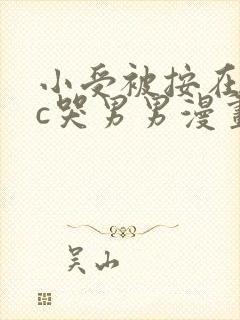 小受被按在
c哭男男漫畫
吴山